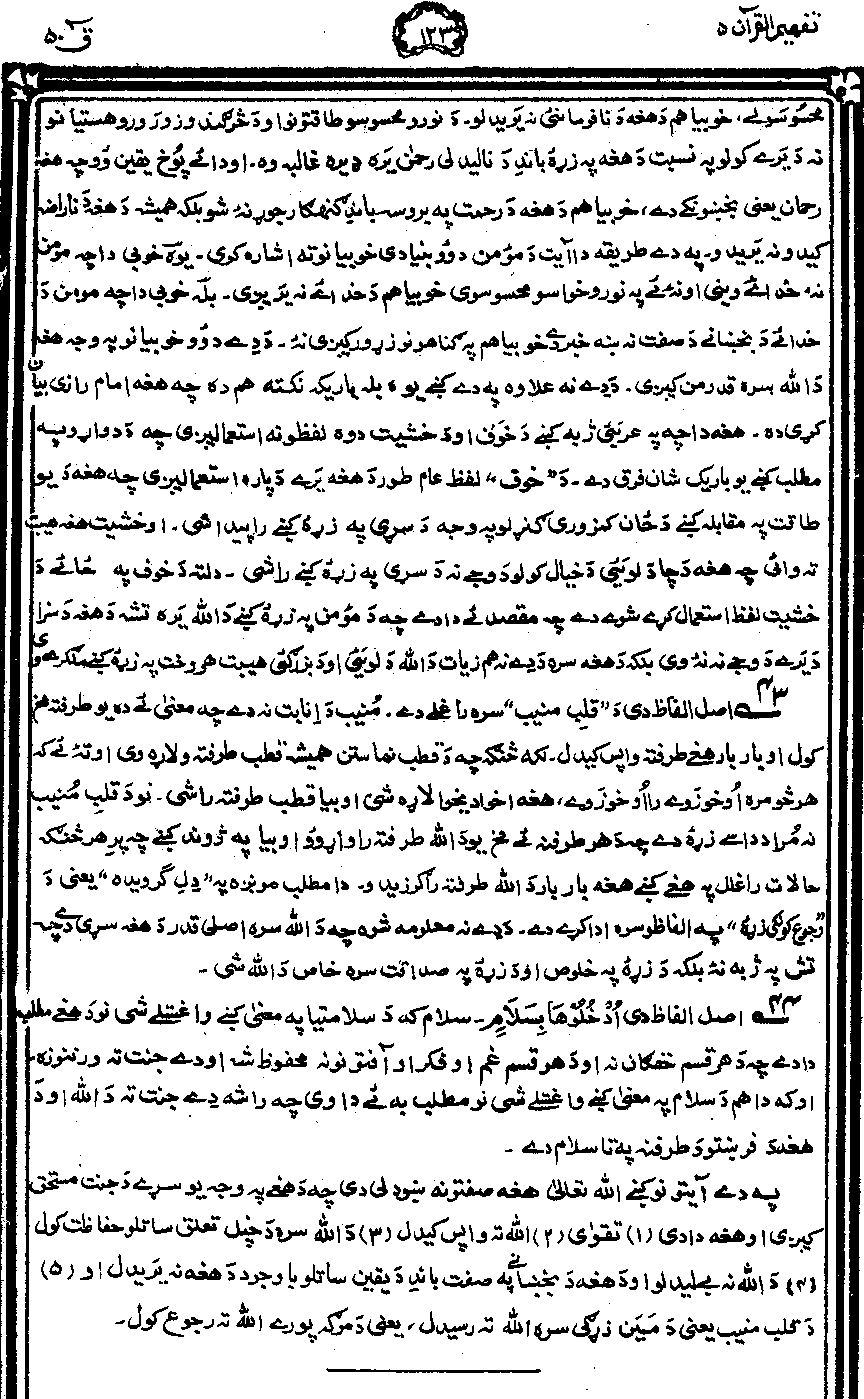 تفهیم القرآن ۵
۱۲۳
ق ۵۰
محسوسولے، خو بیا هم دَ هغه دَ نافرمانئ نه یَریدلو۔ دَ نورو محسوسو طاقتونو او دَ څرګند و زور ورو هستیا نو
نه دَ یَرے کولو په نسبت دَ هغه په زړهٔ باندِ دَ نالیدلی رحمٰن یَره ډیره غالبه وه۔ او دائے پوخ یقین وُو چه هغه
رحمان یعنی بخښونکے دے، خو بیا هم دَ هغه دَ رحمت په بروسه باندِ ګنهګار جوړ نهٔ شو بلکه همیشه دَ هغهٔ ناراضه
کیدو نه یَریدو۔ په دے طریقه دا آیت دَ مؤمن دوؤ بنیادی خوبیانوته اشاره کوی۔ یوهٔ خوبی دا چه مؤمن
نه خدائے وینی او نهٔ ئے په نورو خواسو محسوسوی خو بیا هم دَ خدائے نه یَریږی۔ بلّه خوبی دا چه مومن دَ
خدائے دَ بخښانے دَ صفت نه ښه خبر دے خو بیا هم په ګناهونو زړور کیږی نهٔ۔ دَ دِے دوؤ خوبیانو په وجه هغه
دَ الله سره قدرمن کیږی۔ دَ دِے نه علاوه په دے کښے یوه بله باریکه نکته هم ده چه هغه امام رازی بیان
کړی ده۔ هغه دا چه په عربئ ژبه کښے دَ خَوف او دَ خشیت دوه لفظونه استعمالیږی چه دَ دواړو په
مطلب کښے یو باریک شان فرق دے۔ دَ "خوف" لفظ عام طور دَ هغه یَرے دَپاره استعمالیږی چه هغه دَ یو
طاقت په مقابله کښے دَ ځان کمزوری کنړلو په وجه دَ سړی په زړهٔ کښے راپیدا شی۔ او خشیت هغه هیبت
ته وائی چه هغه دَ چا دَ لوئیَئ دَ خیال کولو دَ وجے نه دَ سړی په زړهٔ کښے راشی۔ دلته دَ خوف په ځائے دَ
خشیت لفظ استعمال کړے شوے دے چه مقصد ئے دا دے چه دَ مؤمن په زړهٔ کښے دَ الله یَره تشه دَ هغه دَ سزا
دَ یَرے دَ وجے نه نهٔ وی بلکه دَ هغه سره دَ دِے نه هم زیات دَ الله دَ لوئیَئ او دَ بزرګئ هیبت هر وخت په زړهٔ کښے ملګرے وی
۴۳ اصل الفاظ دی دَ "قلبِ منیب" سره راغلے دے۔ مُنیب دَ اِنابت نه دے چه معنٰی ئے ده یو طرفته مخ
کول او بار بار هغے طرفته واپس کیدل۔ لکه څنګه چه دَ قطب نما ستن همیشه قطب طرفته ولاړه وی او تهٔ ئے که
هر څومره اُوخوزوے رااُوخوزوے، هغه اخوا دیخوا لاړه شی او بیا قطب طرفته راشی۔ نو دَ قلبِ مُنیب
نه مُراد داسے زړهٔ دے چه دَ هر طرفنه ئے مخ یو دَ الله طرفته راواړوؤ او بیا په ژوند کښے چه پرِ هر څنګه
حالات راغلل په هغے کښے هغه بار بار دَ الله طرفته راګرزیدو۔ دا مطلب مونږه په "دِل گرویده" یعنی دَ
"رجوع کونکی زړهٔ" په الفاظو سره ادا کړے دے۔ دَ دِے نه معلومه شوه چه دَ الله سره اصلی قدر دَ هغه سړی دے چه
تش په ژبه نهٔ بلکه دَ زړهٔ په خلوص او دَ زړهٔ په صداقت سره خاص دَ الله شی۔
۴۴ اصل الفاظ دی اُدْخُلُوْهَا بِسَلَامٍ۔ سلام که دَ سلامتیا په معنٰی کښے واغستلے شی نو دَ هغے مطلب
دا دے چه دَ هر قسم خفګان نه او دَ هر قسم غم او فکر او آفتونو نه محفوظ شه او دے جنت ته ورننوزه۔
او که دا هم دَ سلام په معنٰی کښے واغستلے شی نو مطلب به ئے دا وی چه راشه دِے جنت ته دَ الله او دَ
هغهٔ دَ فرښتو دَ طرفنه په تا سلام دے۔
په دے آیتونو کښے الله تعالیٰ هغه صفتونه ښودلی دی چه دَ هغے په وجه یو سړے دَ جنت مستحق
کیږی او هغه دا دی (۱) تقوٰی (۲) الله ته واپس کیدل (۳) دَ الله سره دَ خپل تعلق ساتلو حفاظت کول
(۴) دَ الله نه بے لیدلو او دَ هغه دَ بخښانے په صفت باندِ دَ یقین ساتلو باوجود دَ هغه نه یَریدل او (۵)
دَ قلب منیب یعنی دَ مَیَن زړګی سره الله ته رسیدل، یعنی دَ مرګه پورے الله ته رجوع کول۔